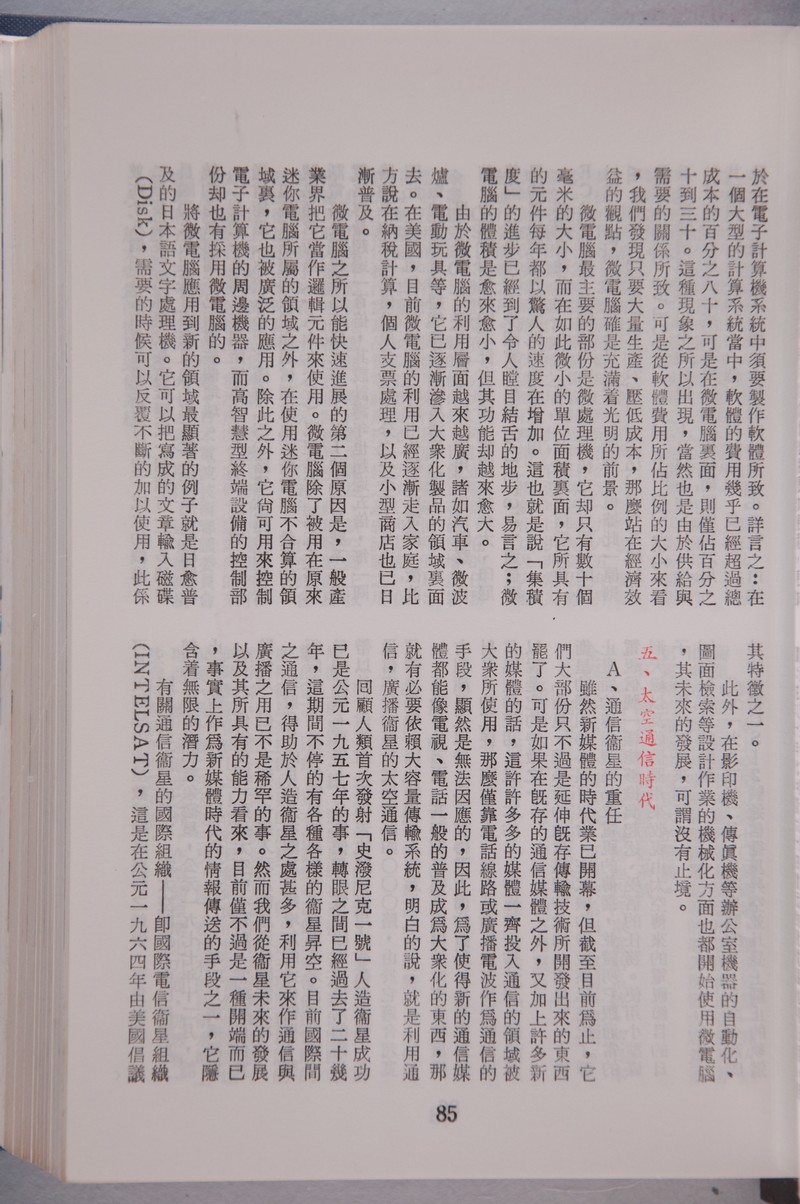 於在電子計算機系統中須要製作軟體所致。詳言之：在
一個大型的計算系統當中，軟體的費用幾乎已經超過總
成本的百分之八十，可是在微電腦裏面，則僅佔百分之
十到三十。這種現象之所以出現，當然也是由於供給與
需要的關係所致。可是從軟體費用所佔比例的大小來看
，我們發現只要大量生產、壓低成本，那麼站在經濟效
益的觀點，微電腦確是充滿着光明的前景。
微電腦最主要的部份是微處理機，它却只有數十個
毫米的大小，而在如此微小的單位面積裏面，它所具有
的元件每年都以驚人的速度在增加。這也就是說「集積
度」的進步已經到了令人瞠目結舌的地步，易言之；微
電腦的體積是愈來愈小，但其功能却越來愈大。
由於微電腦的利用層面越來越廣，諸如汽車、微波
爐、電動玩具等，它已逐漸滲入大衆化製品的領域裏面
去。在美國，目前微電腦的利用已經逐漸走入家庭，比
方說在納稅計算，個人支票處理，以及小型商店也已日
漸普及。
微電腦之所以能快速進展的第二個原因是，一般產
業界把它當作邏輯元件來使用。微電腦除了被用在原來
迷你電腦所屬的領域之外，在使用迷你電腦不合算的領
域裏，它也被廣泛的應用。除此之外，它尙可用來控制
電子計算機的周邊機器，而高智慧型終端設備的控制部
份却也有採用微電腦的。
將微電腦應用到新的領域最顯著的例子就是日愈普
及的日本語文字處理機。它可以把寫成的文章輸入磁碟
（Disk），需要的時候可以反覆不斷的加以使用，此係
其特徵之一。
此外，在影印機、傳眞機等辦公室機器的自動化、
圖面檢索等設計作業的機械化方面也都開始使用微電腦
，其未來的發展，可謂沒有止境。
五、太空通信時代
A、通信衞星的重任
雖然新媒體的時代業已開幕，但截至目前爲止，它
們大部份只不過是延伸旣存傳輸技術所開發出來的東西
罷了。可是如果在旣存的通信媒體之外，又加上許多新
的媒體的話，這許許多多的媒體一齊投入通信的領域被
大衆所使用，那麼僅靠電話線路或廣播電波作爲通信的
手段，顯然是無法因應的，因此，爲了使得新的通信媒
體都能像電視、電話一般的普及成爲大衆化的東西，那
就有必要依賴大容量傳輸系統，明白的說，就是利用通
信，廣播衞星的太空通信。
囘顧人類首次發射「史潑尼克一號」人造衞星成功
已是公元一九五七年的事，轉眼之間已經過去了二十幾
年，這期間不停的有各種各樣的衞星昇空。目前國際間
之通信，得助於人造衞星之處甚多，利用它來作通信與
廣播之用已不是稀罕的事。然而我們從衞星未來的發展
以及其所具有的能力看來，目前僅不過是一種開端而已
，事實上作爲新媒體時代的情報傳送的手段之一，它隱
含着無限的潛力。
有關通信衞星的國際組織——卽國際電信衞星組織
（INTELSAT），這是在公元一九六四年由美國倡議
85